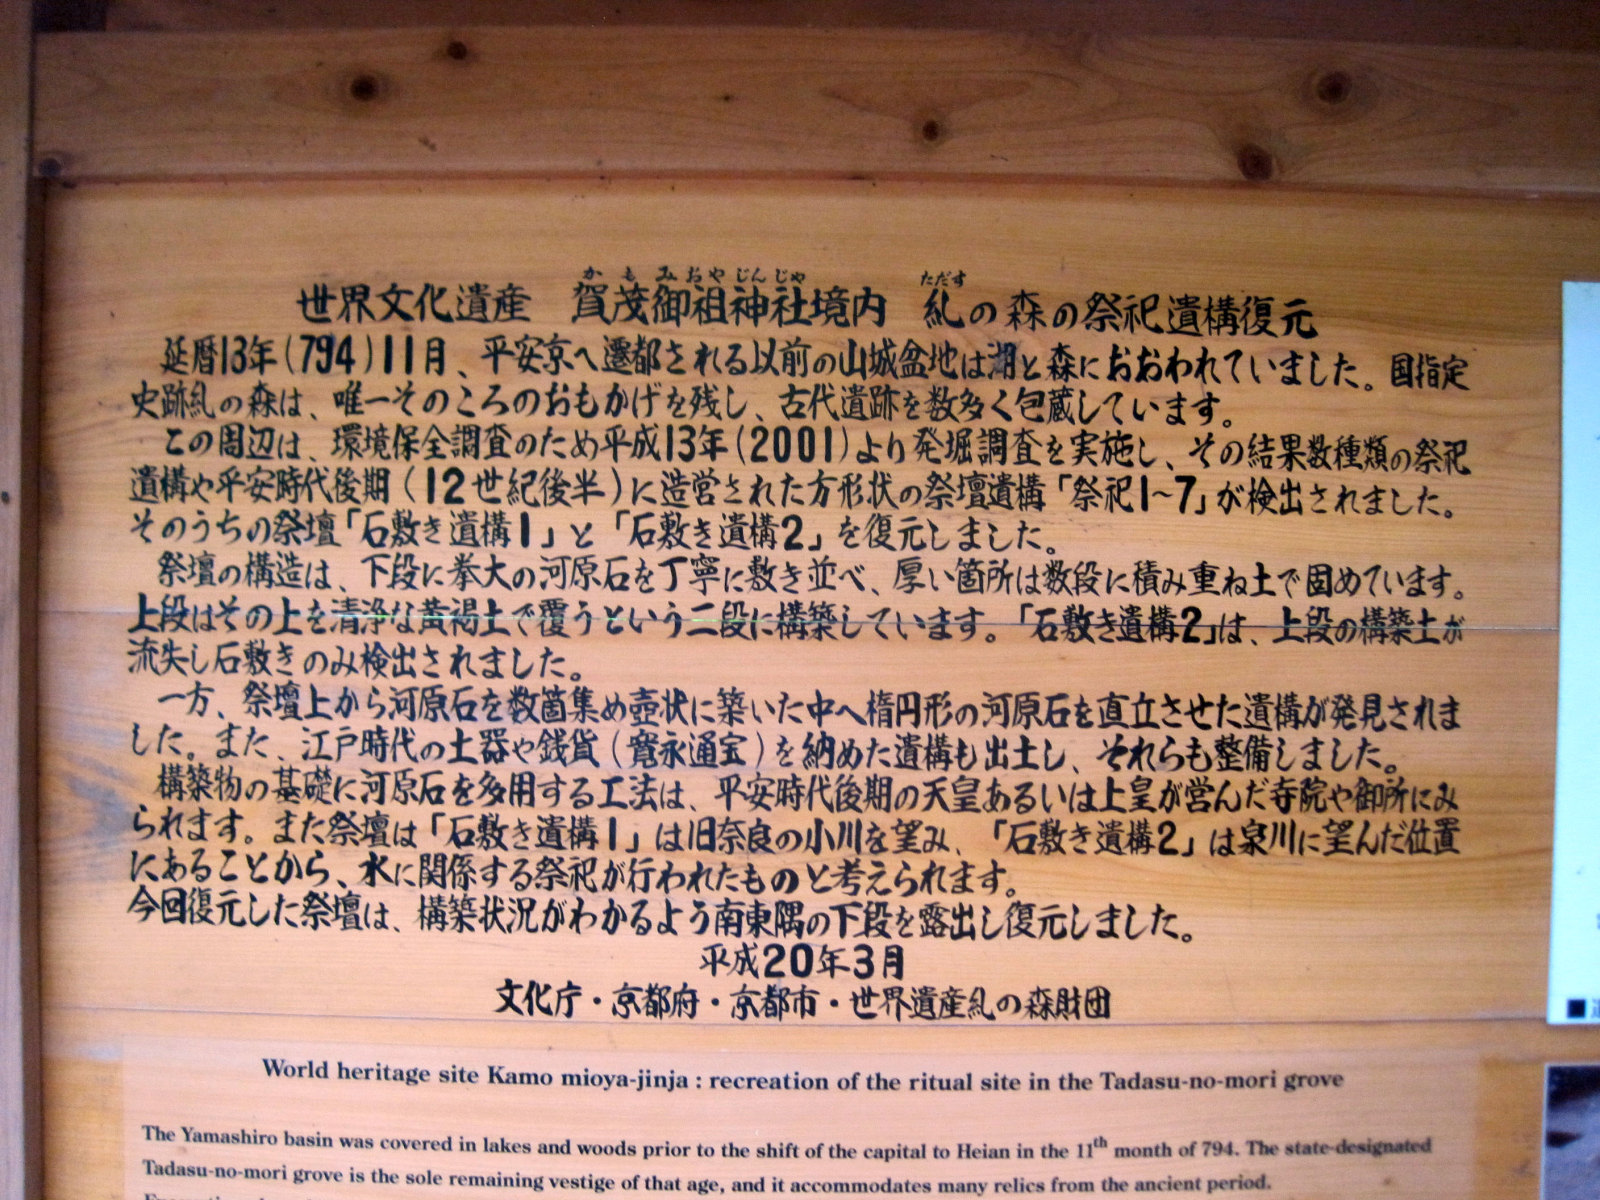 かもみおやじんじゃ ただす
世界文化遺産 賀茂御祖神社境内 糺の森の祭祀遺構復元
延暦13年(794)11月、平安京へ遷都される以前の山城盆地は湖と森におおわれていました。国指定
史跡糺の森は、唯一そのころのおもかげを残し、古代遺跡を数多く包蔵しています。
この周辺は、環境保全調査のため平成13年(2001)より発掘調査を実施し、その結果数種類の祭祀
遺構や平安時代後期(12世紀後半)に造営された方形状の祭壇遺構「祭祀1~7」が検出されました。
そのうちの祭壇「石敷き遺構1」と「石敷き遺構2」を復元しました。
祭壇の構造は、下段に拳大の河原石を丁寧に敷き並べ、厚い箇所は数段に積み重ね土で固めています。
上段はその上を清浄な黄褐土で覆うという二段に構築しています。「石敷き遺構2」は、上段の構築土が
流失し石敷きのみ検出されました。
一方、祭壇上から河原石を数箇集め壺状に築いた中へ楕円形の河原石を直立させた遺構が発見されま
した。また、江戸時代の土器や銭貨(寛永通宝)を納めた遺構も出土し、それらも整備しました。
構築物の基礎に河原石を多用する工法は、平安時代後期の天皇あるいは上皇が営んだ寺院や御所にみ
られます。また祭壇は「石敷き遺構1」は旧奈良の小川を望み、「石敷き遺構2」は泉川に望んだ位置
にあることから、水に関係する祭祀が行われたものと考えられます。
今回復元した祭壇は、構築状況がわかるよう南東隅の下段を露出し復元しました。
平成20年3月
文化庁・京都府・京都市・世界遺産糺の森財団
World heritage site Kamo mioya-jinja : recreation of the ritual site in the Tadasu-no-mori grove
The Yamashiro basin was covered in lakes and woods prior to the shift of the capital to Heian in the 11th month of 794. The state-designated
Tadasu-no-mori grove is the sole remaining vestige of that age, and it accommodates many relics from the ancient period.